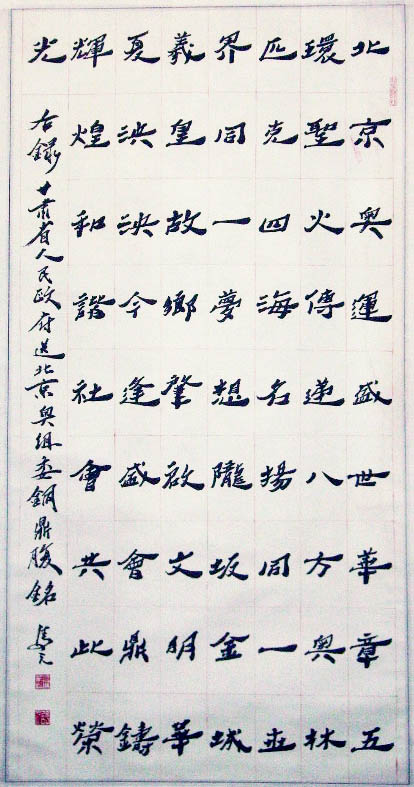 北京奧運盛世華章五
環聖火傳递八方奧林
匹克四海名揚同一世
界同一夢想隴坂金城
羲皇故鄉肇啟文明華
夏泱泱今逢盛會鼎鑄
輝煌和諧社會共此榮
光
右錄甘肅省人民政府送北京奧組委銅鼎腹銘